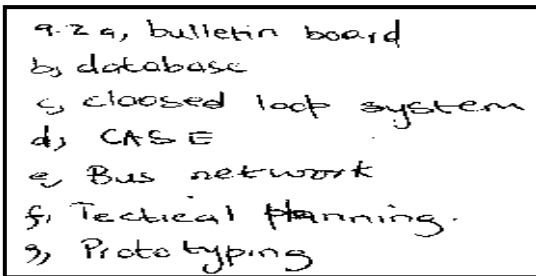 9.2 a, bulletin board
b, database
c, cloosed loop system
d, CASE
e, Bus network
f, Tectical planning.
g, Prototyping